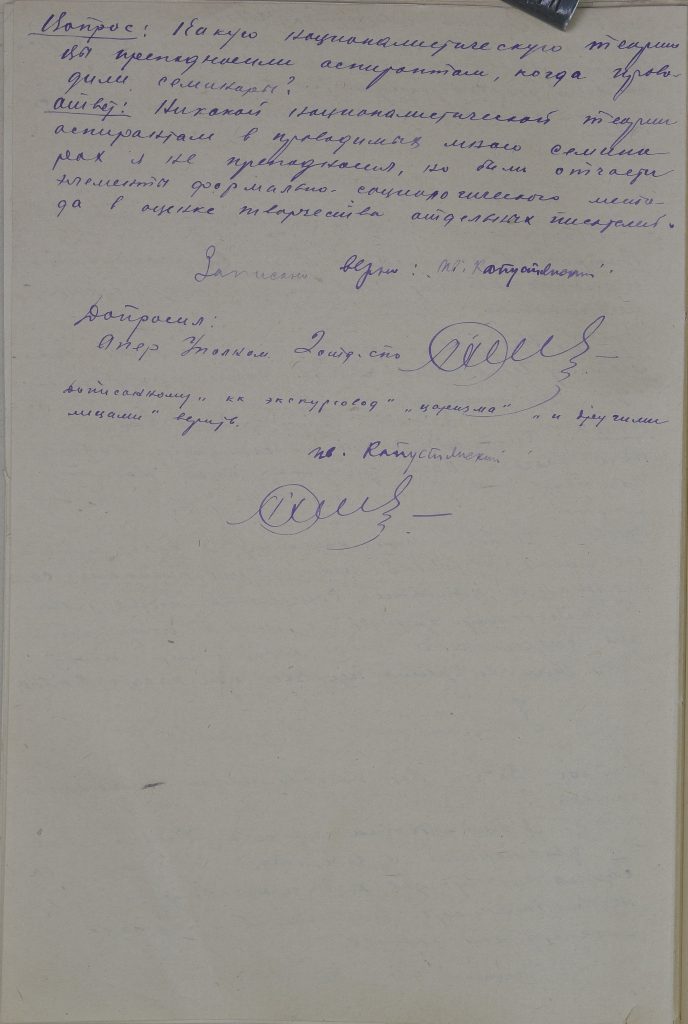 Вопрос: Какую националистическую теорию
Вы преподносили аспирантам, когда прово-
дили семинары?
Ответ: Никакой националистической теории
аспирантам в проводимых мною семина-
рах я не преподносил, но были отчасти
элементы формально-социологического мето-
да в оценке творчества отдельных писателей.
Записано верно: Капустянский.
Допросил:
Опер Уполном. 2 отд. СПО
Дописанному „ экскурсовод" „царизма" „и другими
лицами" верить.
Капустянский